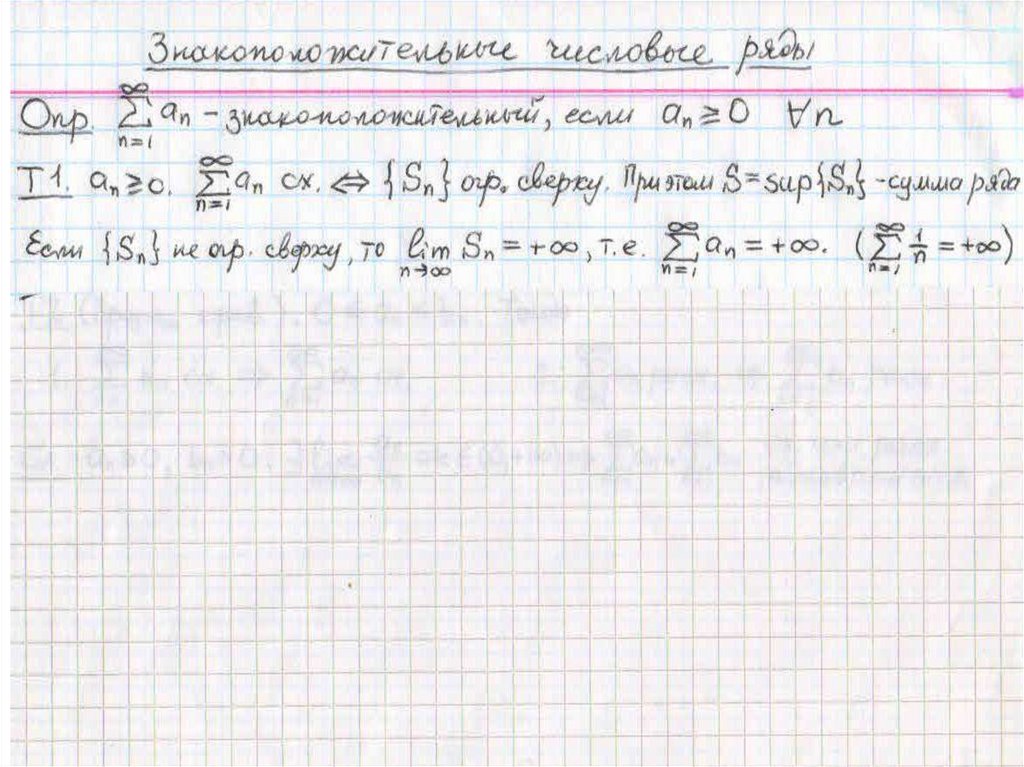 Знакоположительные числовые ряды
Опр ∞∑n=1 aₙ – знакоположительный, если aₙ ≥ 0 ∀n
T1. aₙ ≥ 0. ∞∑n=1 aₙ сх. ⇔ {Sₙ} огр. сверху. При этом S = sup{Sₙ} - сумма ряда
Если {Sₙ} не огр. сверху, то lim n→∞ Sₙ = +∞, т.е. ∞∑n=1 aₙ = +∞. (∞∑n=1 1/n = +∞)